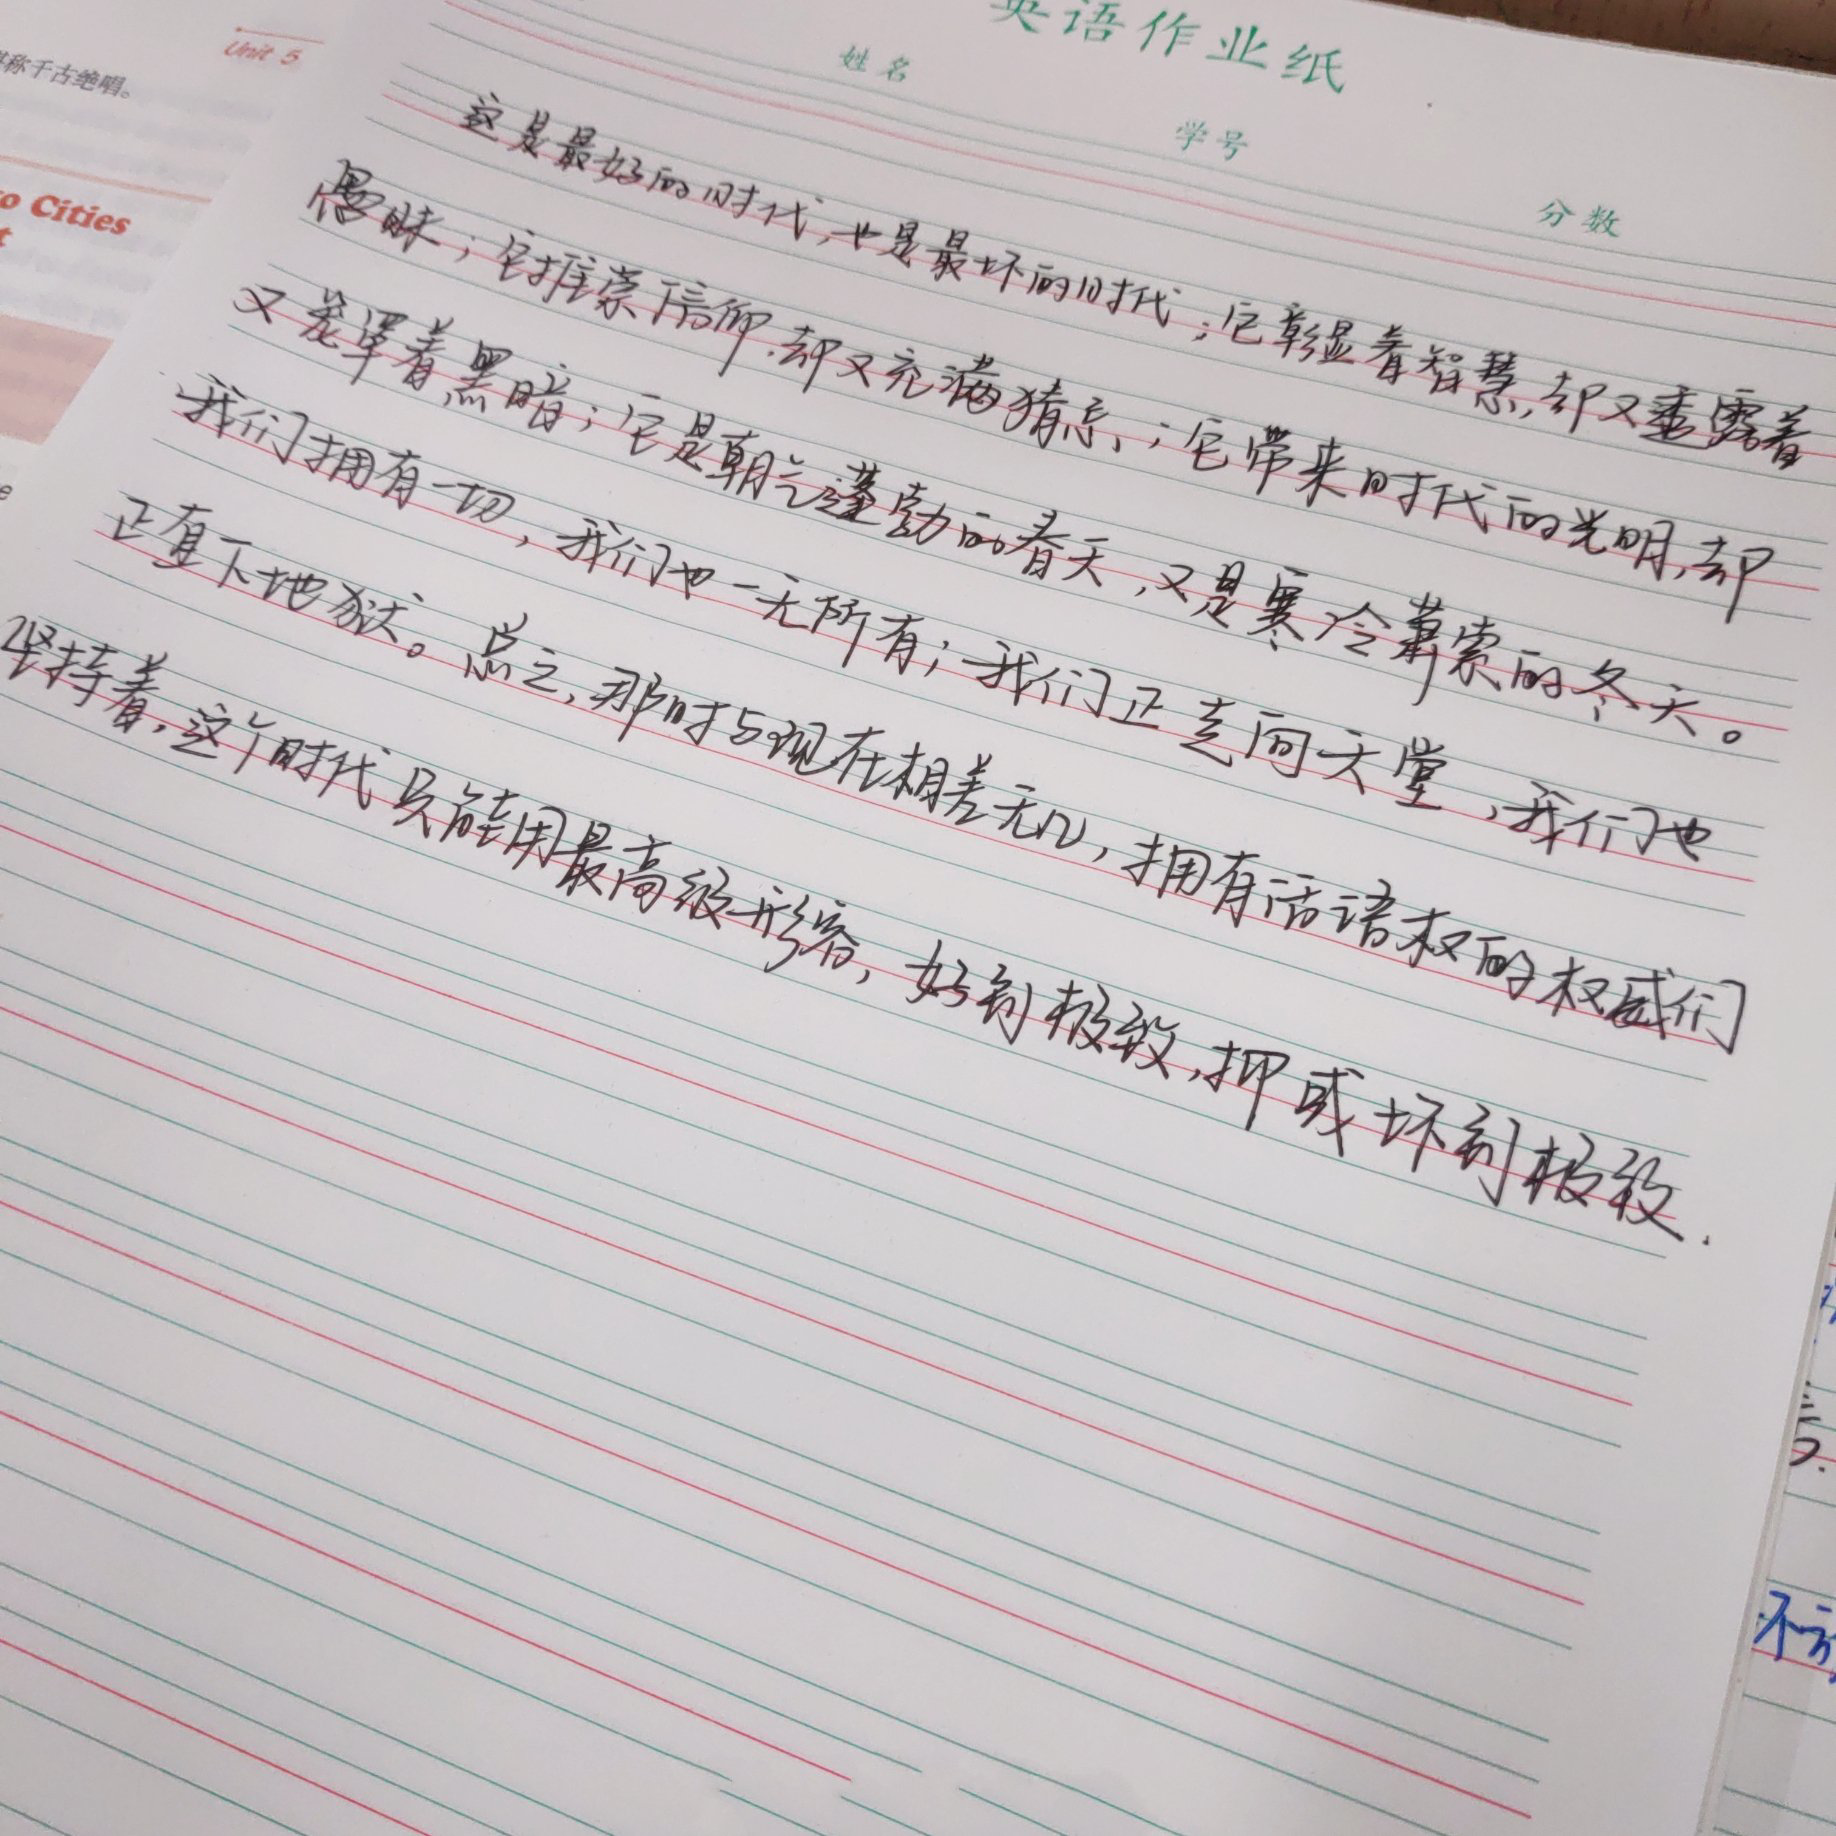 英语作业纸
姓名
学号
分数
这是最好的时代,也是最坏的时代;它彰显着智慧,却又重露着
愚昧;它推崇信仰,却又充满猜忌;它带来时代的光明,却
又笼罩着黑暗;它是朝气蓬勃的春天,又是寒冷萧索的冬天。
我们拥有一切,我们也一无所有;我们正走向天堂,我们也
正直下地狱。总之,那时与现在相差无几,拥有话语权的权威们
坚持着,这个时代只能用最高级形容,好到极致,押或坏到极致.
Unit 5
称千古绝唱。
o Cities
不